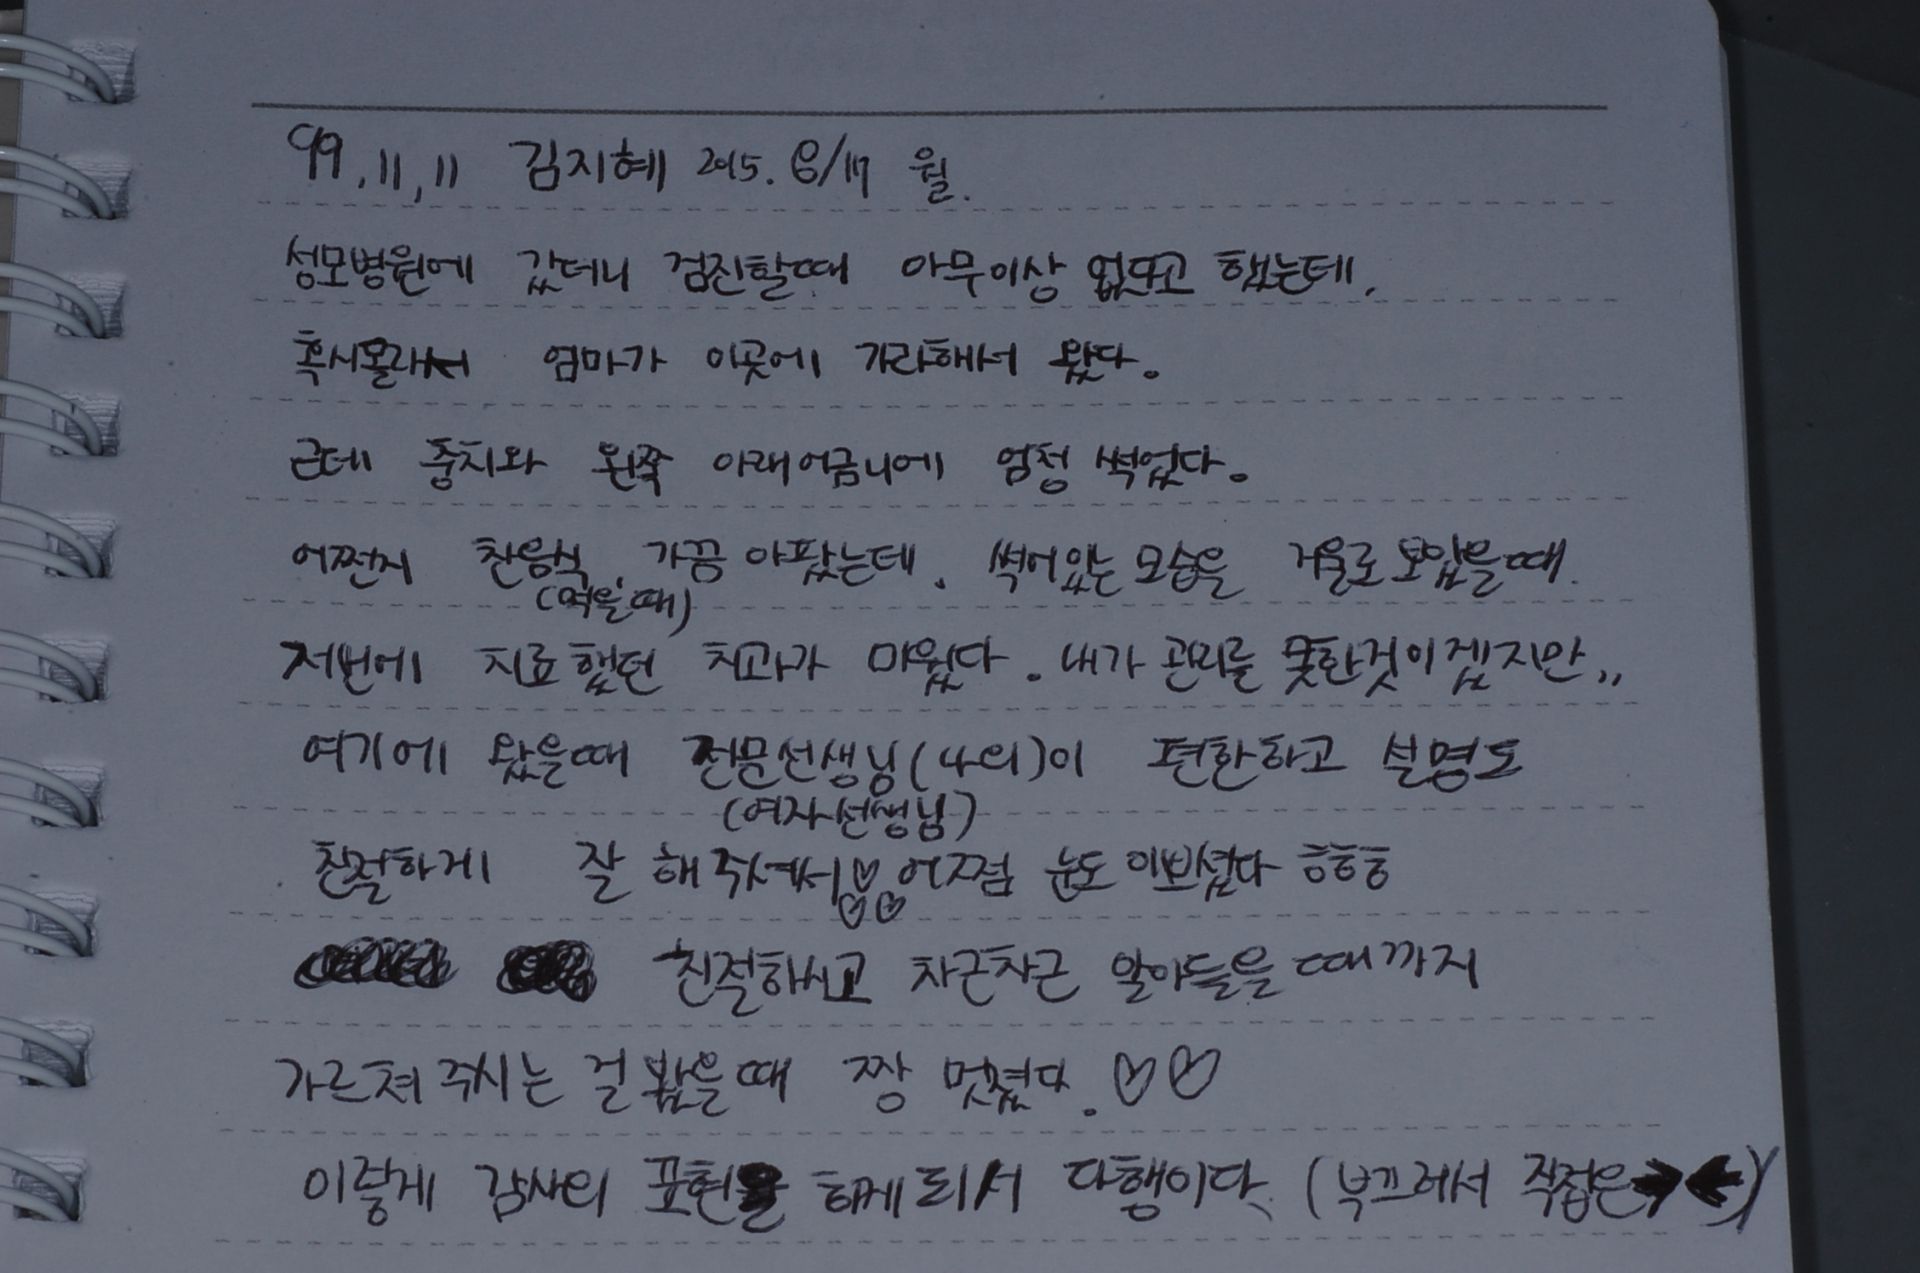 99.11.11 김지혜 2015. 8/17 월.
성모병원에 갔더니 검진할때 아무이상 없다고 했는데,
혹시몰라서 엄마가 이곳에 가라해서 왔다.
근데 충치와 왼쪽 아래어금니에 엄청 썩었다.
어쩐지 찬음식, 가끔 아팠는데. 썩어있는 모습을 거울로 보았을때.
(먹을때)
저번에 치료했던 치과가 미웠다. 내가 관리를 못한것이겠지만,,
여기에 왔을때 전문선생님(나의)이 편한하고 설명도
(여자선생님)
친절하게 잘 해주셔서♡♡어쩜 눈도 이쁘셨다 흐흐흐
♡♡
친절하시고 차근차근 알아들을때까지
가르쳐주시는 걸 봤을때 짱 멋졌다. ♡♡
이렇게 감사의 표현을 하게 되서 다행이다. (부끄러서 직접은→←)